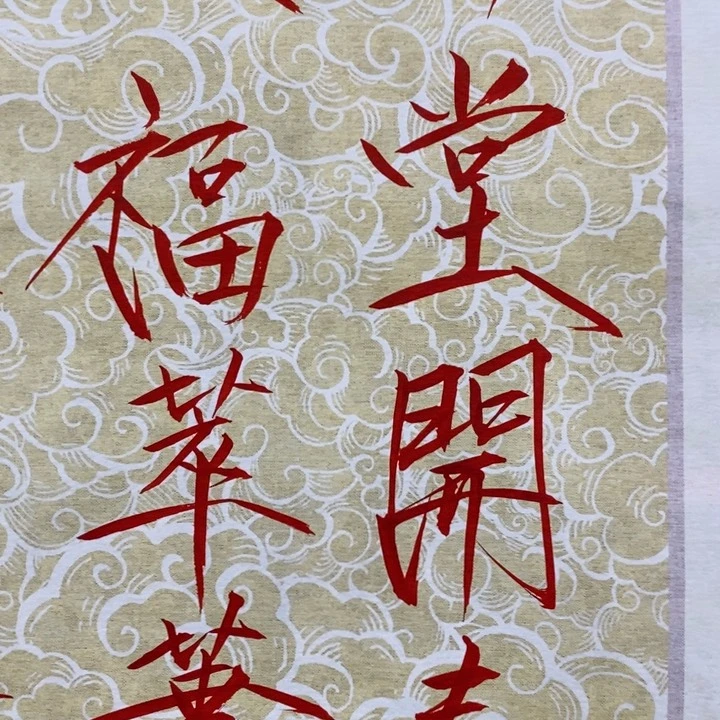 堂開
福萃